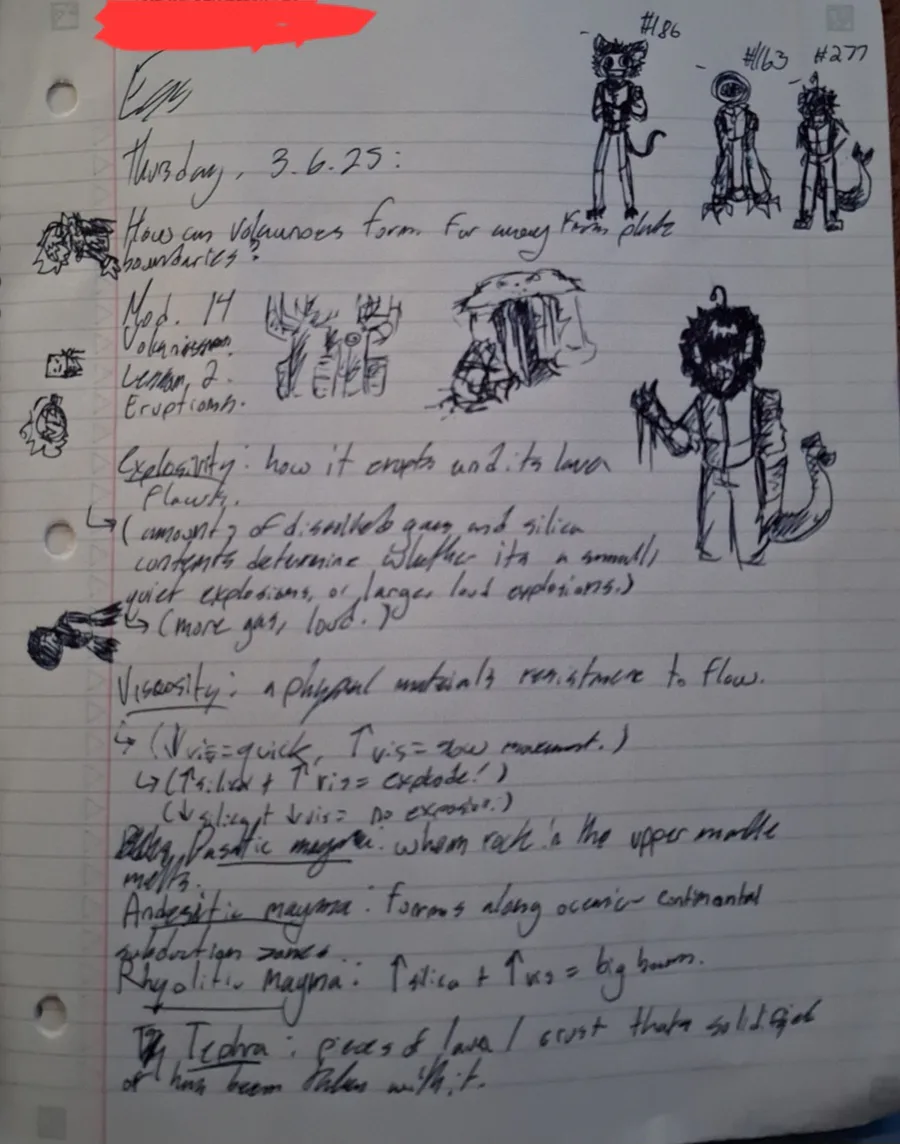 #186
#163 #277
Thursday, 3.6.25:
How can Volcunoes form far away from plate
boundaries?
Mod. 14
Volcanism
Lesson, 2.
Eruptions.
Explosivity: how it erupts and its lava
flows.
↳ (amounts of dissolved gas and silica
contents determine whether its a small,
quiet explosions, or larger loud explosions.)
↳ (more gas, loud.)
Viscosity: a physical materials resistance to flow.
↳ (↓vis=quick, ↑vis=slow movement.)
↳ (↑silica + ↑vis= explode!)
(↓silica+ ↓vis= no expossion.)
Basaltic magma: when rock in the upper mantle
melts.
Andesitic magma: forms along oceanic-continental
subduction zones
Rhyolitic magma: ↑silica + ↑vis = big boom.
Tephra: pieces of lava/crust thats solidified
or has been taken with it.